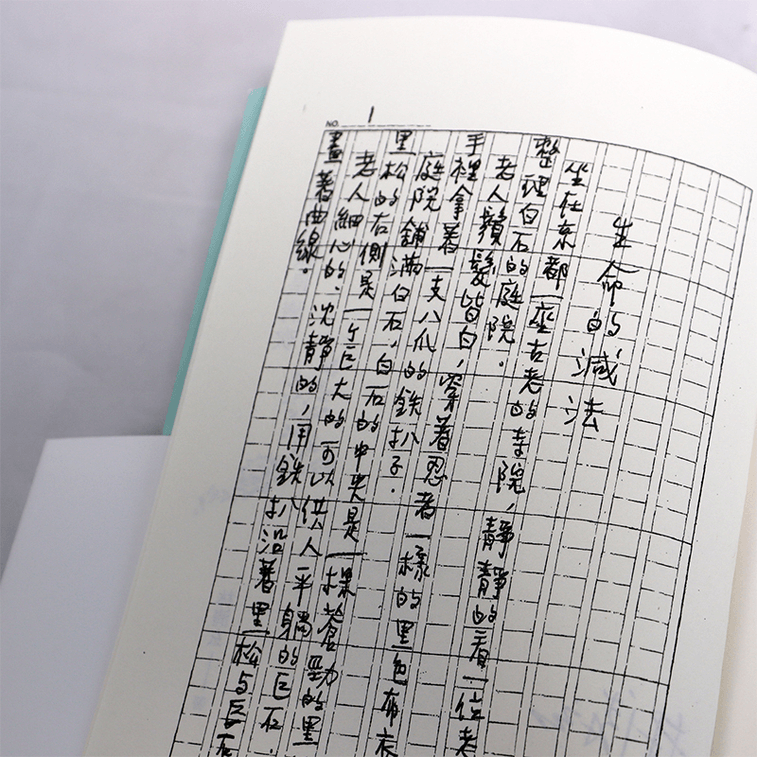 NO. 1
生命的減法
坐在京都一座古老的寺院，靜靜的看一位老
整理白石的庭院。
老人鬚髮皆白，穿著忍者一樣的黑色布衣
手裡拿著一支八爪的鉄扒子。
庭院鋪滿白石，白石的中央是一棵蒼勁的黑
黑松的右側是一个巨大的可以供人平躺的巨石。
老人細心的、沈靜的，用鉄扒沿著黑松与巨石
畫著曲線。